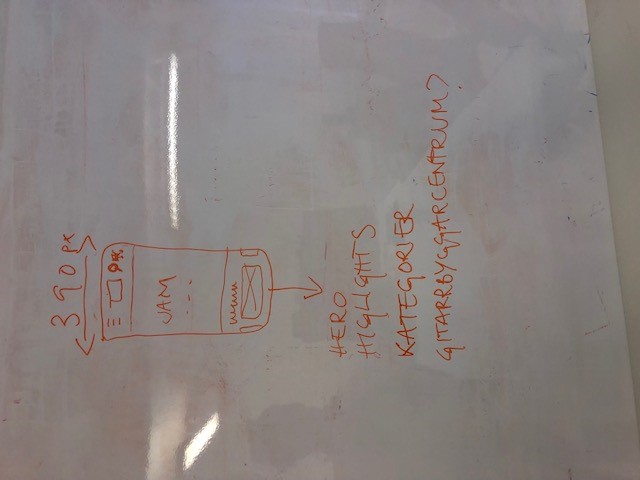 390px
JAM
...
HERO
HIGHLIGHTS
KATEGORIER
GITARRBYGGARCENTRUM?